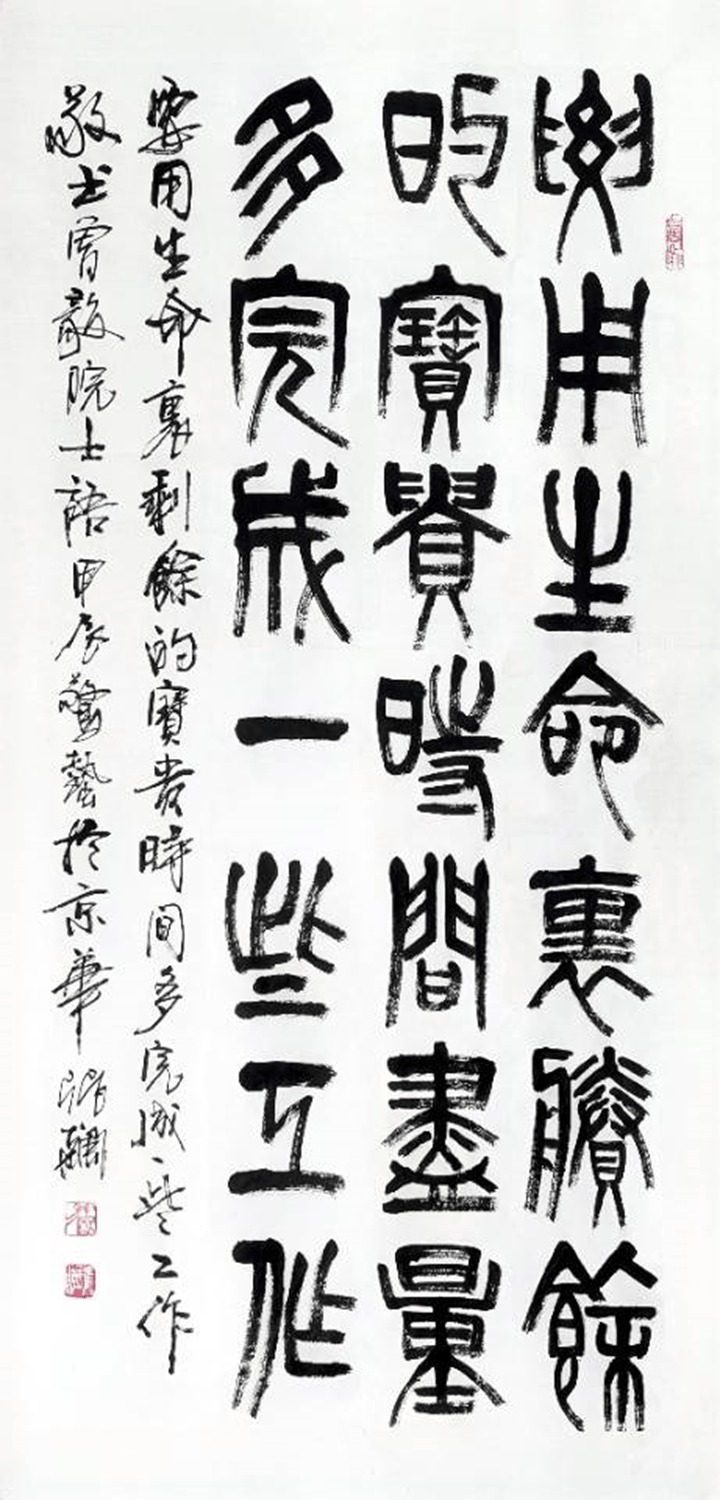 要用生命裏賸餘
的寶貴時間盡量
多完成一些工作
要用生命裏剩餘的寶貴時間多完成一些工作
敬书曾毅院士語甲辰驚蟄於京華